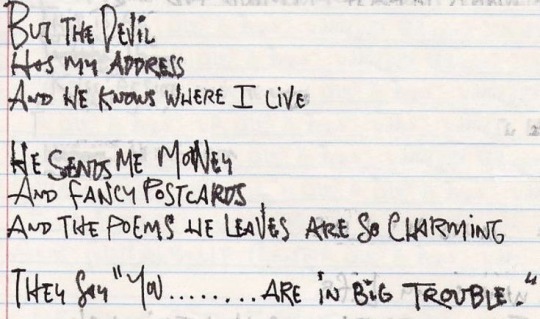 BUT THE DEVIL
HAS MY ADDRESS
AND HE KNOWS WHERE I LIVE
HE SENDS ME MONEY
AND FANCY POSTCARDS
AND THE POEMS HE LEAVES ARE SO CHARMING
THEY SAY "YOU.........ARE IN BIG TROUBLE."